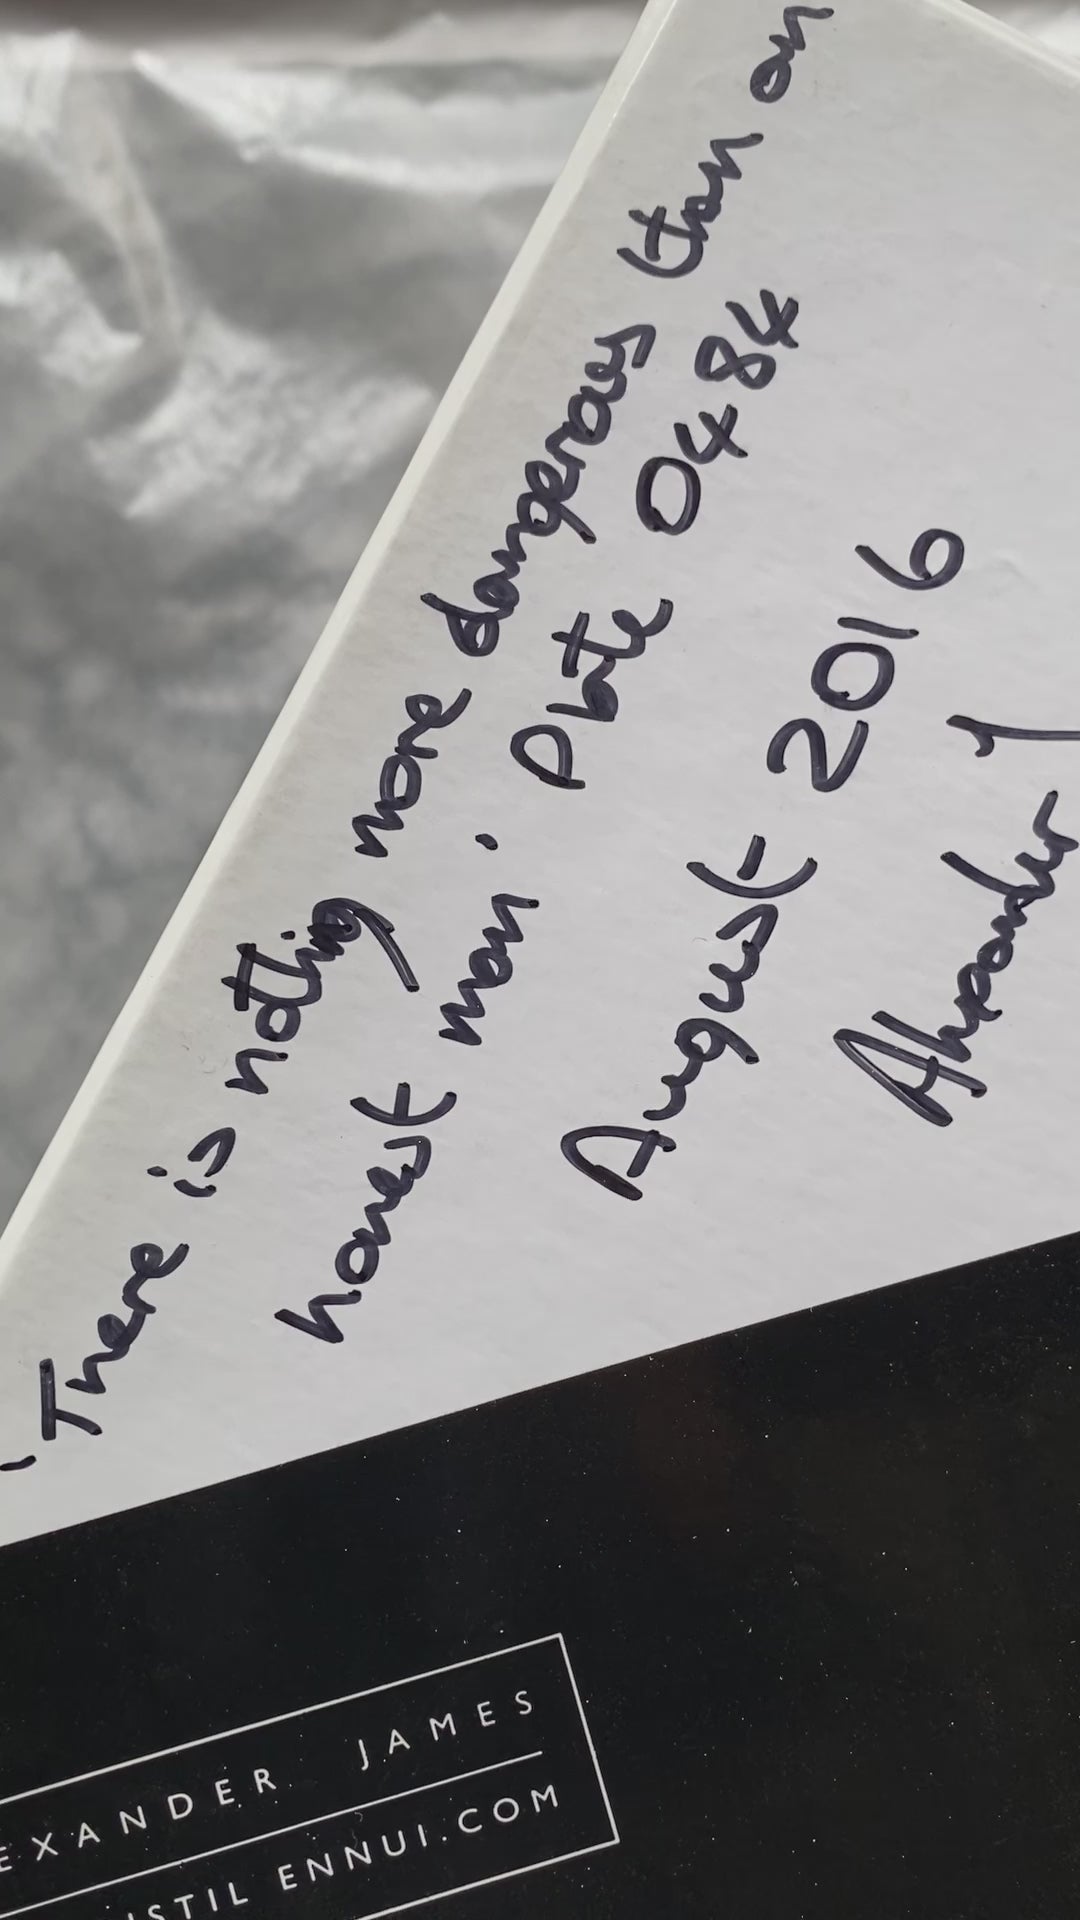 'There is nothing more dangerous than an
honest man'. Plate 0484
August 2016
Alexander J
EXANDER JAMES
ISTIL ENNUI.COM